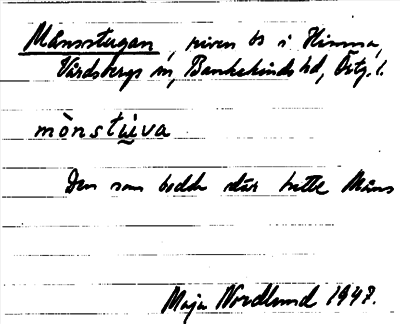 Månsstugan, riven bs i Himna,
Vårdsbergs sn, Bankekinds hd, Östg. l.
mònstùva
Den som bodde där hette Måns
Maja Nordlund 1947.